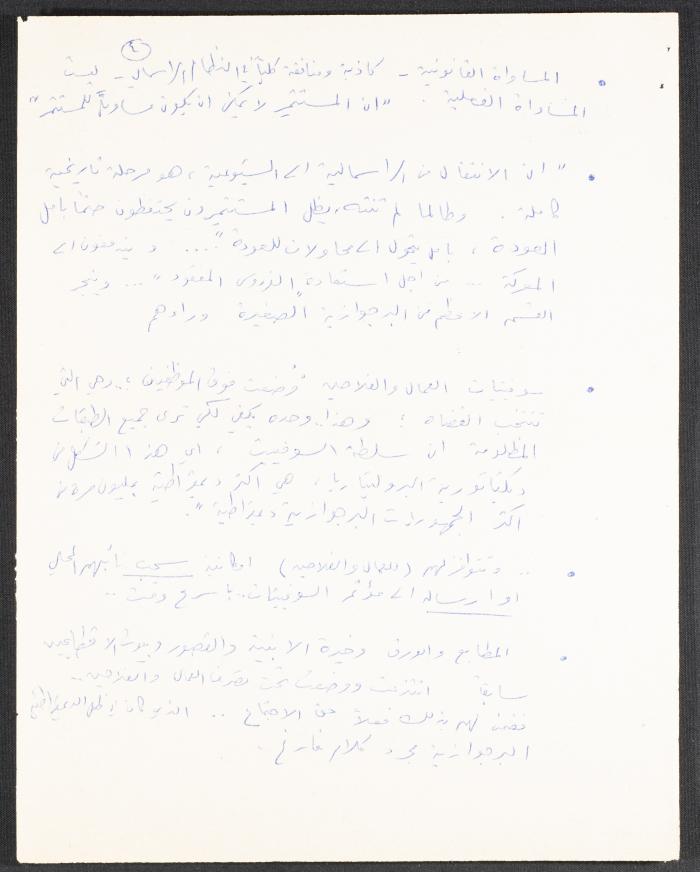 ٤
• المساواة القانونية - كاذبة ومنافقة كلياً في النظام الرأسمالي - ليست
المساواة الفعلية . "ان المستثمِر لا يمكن ان يكون مساوياً للمستثمَر"
• "ان الانتقال من الرأسمالية الى الشيوعية ، هو مرحلة تاريخية
كاملة . وطالما لم تنته، يظل المستثمرون يحتفظون حتماً بامل
العودة ، بامل يتحول الى محاولات للعودة" .... و يندفعون الى
المعركة ... من اجل استعادة "الفردوس المفقود" ... وينجر
القسم الاعظم من البرجوازية الصغيرة وراءهم
• سوفييتات العمال والفلاحين وُضعت فوق الموظفين ؛ .. وهي التي
تنتخب القضاة ؛ وهذا وحده يكفي لكي ترى جميع الطبقات
المظلومة ان سلطة السوفييت ، اي هذا الشكل من
ديكتاتورية البروليتاريا ، هي اكثر ديمقراطية بمليون مرة من
اكثر الجمهوريات البرجوازية ديمقراطية " .
• .. وتتوافر لهم (للعمال والفلاحين) امكانية سحب نائبهم المحلي
او ارساله الى مؤتمر السوفييتات .. باسرع وقت ..
• المطابع والورق وخيرة الابنية والقصور وبيوت الاقطاعيين
سابقاً انتزعت ووضعت تحت تصرف العمال والفلاحين ..
فضمن لهم بذلك فعلاً حق الاجتماع .. الذي كان في ظل الديمقراطية
البرجوازية مجرد كلام فارغ .